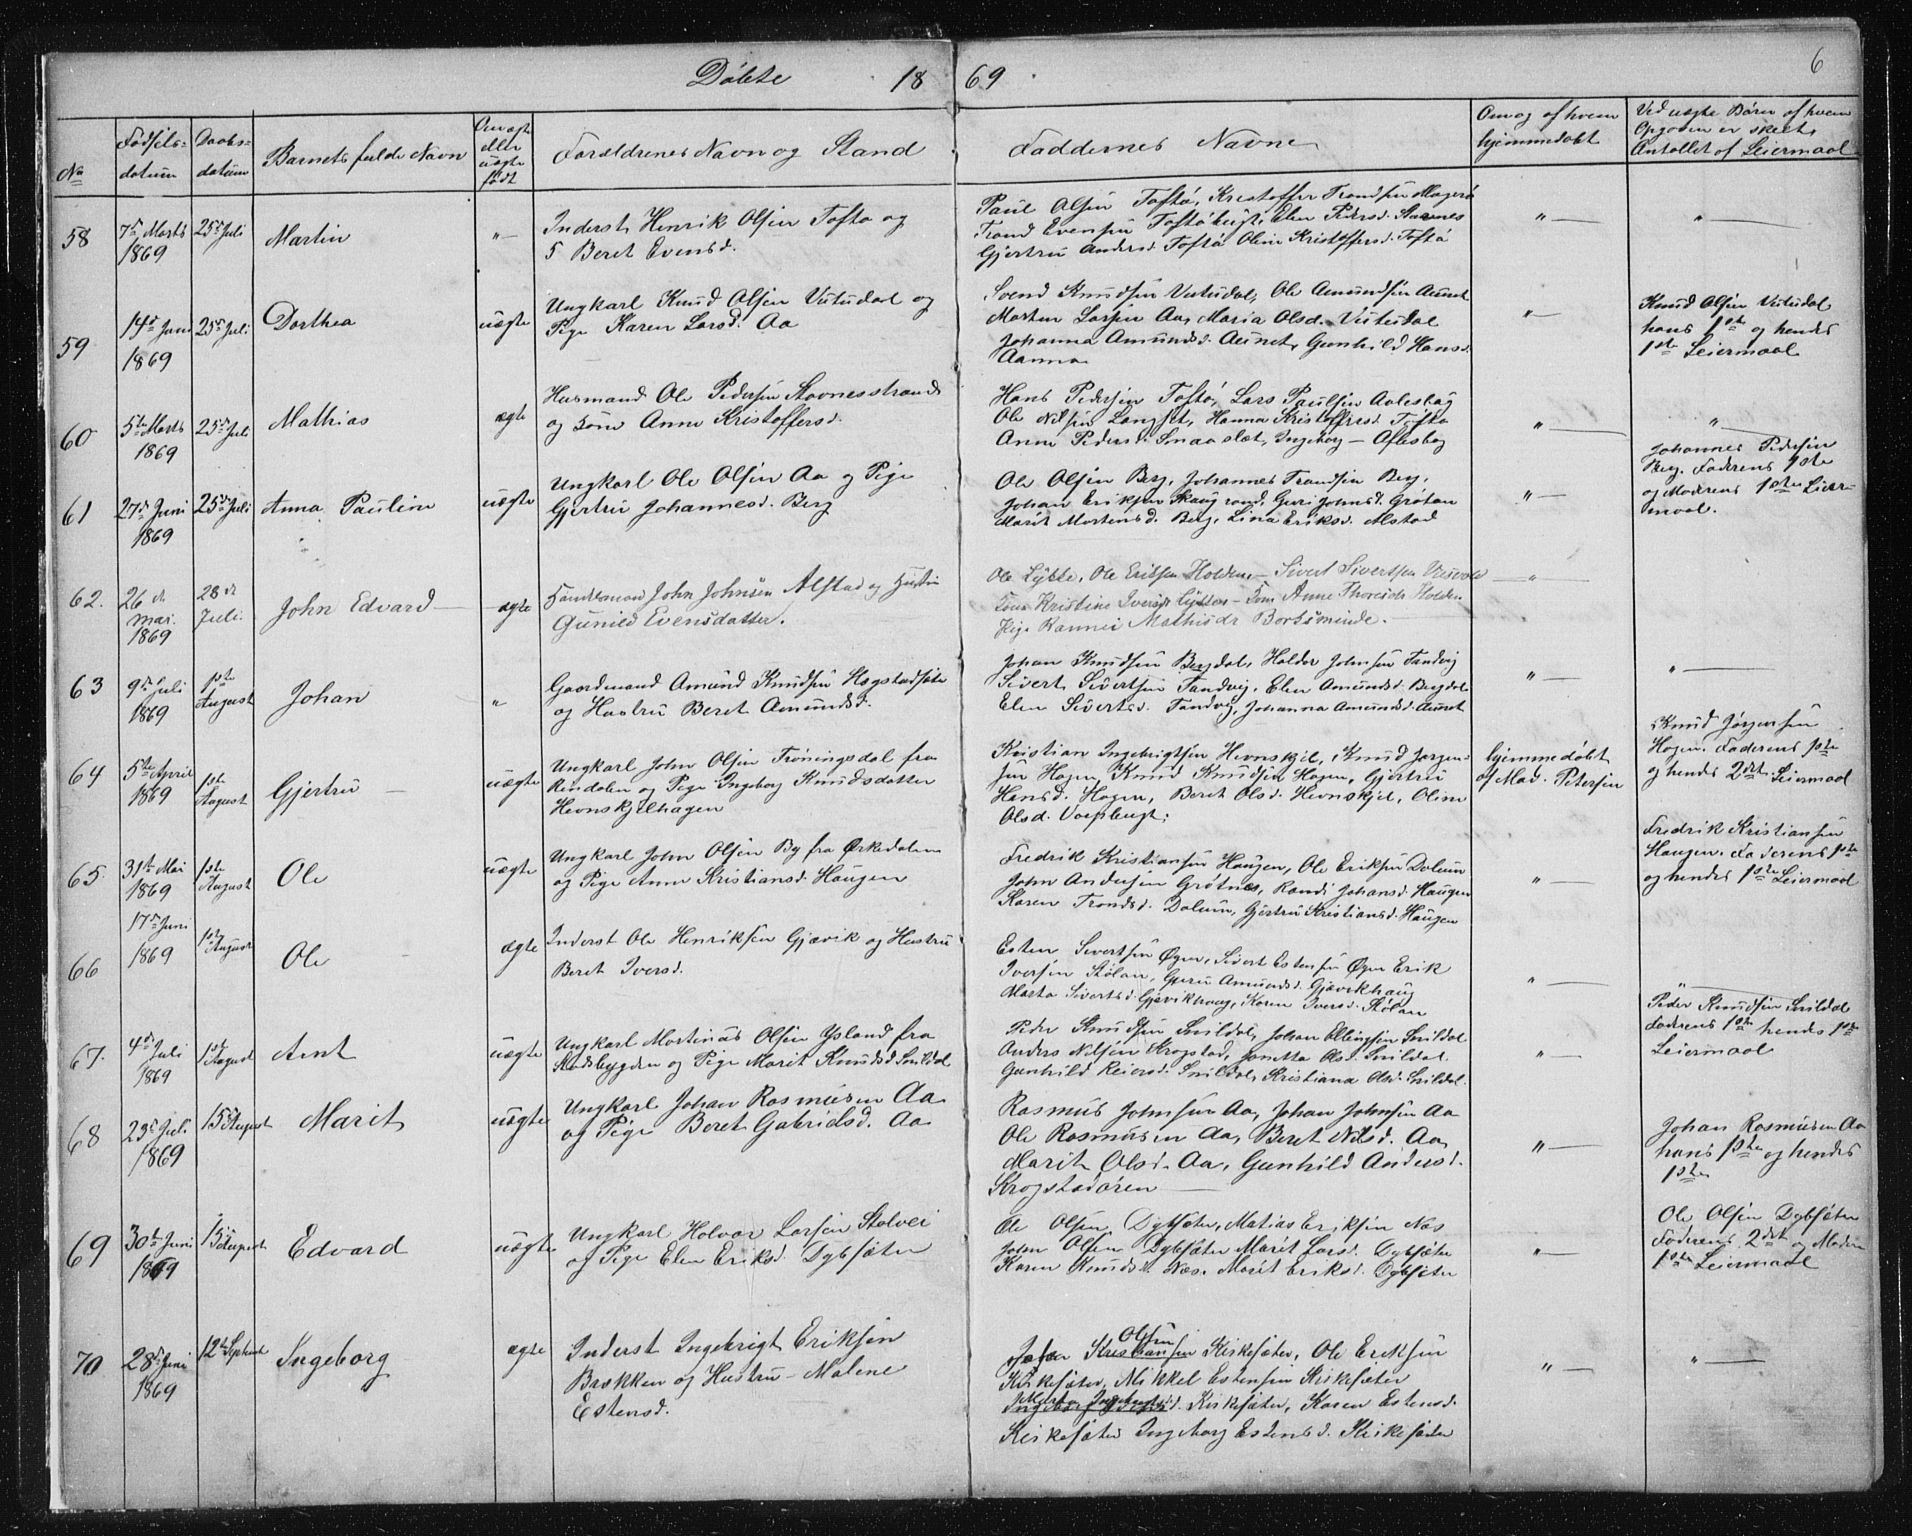 Döbte 18 69
6
No
Fødsels-
datum
Daabs-
datum
Barnets fulde Navn
Om ægte
eller
uægte
født
Forældrenes Navn og Stand
Faddernes Navne
Om og af hvem
hjemmedøbt
Ved uægte Børn af hvem
Opgaven er skeet,
Antallet af Leiermaal
58
7de Marts
1869
25de Juli
Martin
"
Inderst Henrik Olsen Toftø og
Beret Evensd.
Paul Olsen Toftø, Kristoffer Trondsen Magerø
Trond Evensen Toftøbugt, Elen Pedersd. Stavnes
Gjertru Andersd Toftø Oline Kristoffersd. Toftø
"
"
59
14de Juni
1869
25de Juli
Dorthea
uægte
Ungkarl Knud Olsen Vutudal og
Pige Karen Larsd. Aa
Svend Knudsen Vutudal, Ole Amundsen Aunet
Morten Larsen Aa, Maria Olsd. Vutudal
Johanna Amundsd. Aunet, Gunhild Hansd.
Aanna
"
Knud Olsen Vutudal
hans 1ste og hendes
1ste Leiermaal
60
5te Marts
1869
25de Juli
Mathias
ægte
Husmand Ole Pedersen Stavnesstrand
og Kone Anne Kristoffersd.
Hans Pedersen Toftø, Lars Paulsen
Ole Nilsen Langset, Hanna Kristoffersd Toftø
Anne Pedersd. Smaaslet, Ingeborg —
"
"
61
27de Juni
1869
25de Juli
Anna Pauline
uægte
Ungkarl Ole Olsen Aa og Pige
Gjertru Johannesd. Berg
Ole Olsen Berg, Johannes Trondsen Berg,
Johan Eriksen Guri Johnsd. Grötan
Marit Mortensd. Berg, Lina Eriksd. Alstad
"
Johannes Pedersen
Berg. Faderens 1ste
og Moderens 1ste Leier-
maal.
62.
26de
mai.
1869
28de
Juli.
John Edvard
ægte
John Johnsen Alstad og Hustru
Gunild Evensdatter.
Ole Lykke, Ole Eriksen Holden, — Sivert Sivertsen
Kone Kristine Iversdr Lykken — Kone Anne Thoresdr Holden
Pige Rannei Mathisdr Bortsminde.
"
63
9de Juli
1869
1ste
August
Johan
"
Gaardmand Amund Knudsen Hegstadsæter
og Hustru Beret Amundsd.
Johan Knudsen Bergdal, Haldor Johnsen Tandvig
Sivert Sivertsen Tandvig, Elen Amundsd. Bergdal
Elen Sivertsd. Tandvig, Johanna Amundsd. Aunet
"
"
64
5te April
1869
1ste
August
Gjertru
uægte
Ungkarl John Olsen Tröningsdal fra
Rindalen og Pige Ingeborg Knudsdatter
Hevnskjelhagen
Kristian Ingebrigtsen Hevnskjel, Knud Jørgen-
sen Hagen, Knud Knudsen Hagen, Gjertru
Hansd. Hagen, Beret Olsd. Hevnskjel, Oline
Olsd.
hjemmedøbt
af Mad. Petersen
Knud Jørgensen
Hagen. Faderens 1ste
og hendes 2det Leiermaal
65.
31te Mai
1869
1ste
August
Ole
uægte
Ungkarl John Olsen By fra Ørkedalen
og Pige Anne Kristiansd. Haugen
Fredrik Kristiansen Haugen, Ole Eriksen Dalum
John Andersen Grøtnæs, Randi Johansd. Haugen
Karen Trondsd. Dalum, Gjertru Kristiansd. Haugen
"
Fredrik Kristiansen
Haugen. Faderens 1ste
og hendes 1ste Leiermaal
66
17de Juni
1869
1ste
August
Ole
ægte
Inderst Ole Henriksen Gjævik og Hustru
Beret Iversd.
Esten Sivertsen Øyen, Sivert Estensen Øyen Erik
Iversen Stølan, Guru Amundsd. Gjævikhaug
Marta Sivertsd. Gjævikhaug, Karen Iversd. Stølan
"
"
67.
4de Juli
1869
1ste
August
Arnt
uægte
Ungkarl Martinus Olsen Ysland fra
Stadsbygden og Pige Marit Knudsd. Snildal
Peder Knudsen Snildal, Johan Ellingsen Snildal
Anders Nilsen Krogstad, Janetta Olsd. Snildal.
Gunhild Reiersd. Snildal, Kristiana Olsd. Snildal.
"
Peder Knudsen Snildal
Faderens 1ste hendes 1ste
Leiermaal
68
23de Juli
1869
15de August
Marit
uægte
Ungkarl Johan Rasmusen Aa
og Pige Beret Gabrielsd. Aa
Rasmus Johnsen Aa, Johan Johnsen Aa
Ole Rasmusen Aa, Beret Nilsd. Aa,
Marit Olsd. Aa, Gunhild Andersd.
Krogstadøren
"
Johan Rasmusen Aa
hans 1ste og hendes
1ste
69
30te Juni
1869
15de August
Edvard
uægte
Ungkarl Halvor Larsen Stolvei
og Pige Elen Eriksd. Dybsæter
Ole Olsen Dybsæter, Matias Eriksen Næs
John Olsen Dybsæter Marit Larsd. Dybsæter
Karen Knudsd. Næs. Marit Eriksd. Dybsæter
"
Ole Olsen Dybsæter
Faderens 2det og Moderens
1ste Leiermaal
70
28de Juni
1869
12te Septembr
Ingeborg
ægte
Inderst Ingebrigt Eriksen
Brækken og Hustru — Malene
Estensd.
Olsen
Kristiansen Kirkesæter, Ole Eriksen
Kirkesæter, Mikkel Estensen Kirkesæter
Kirkesæter, Karen Estensd.
Kirkesæter Ingeborg Estensd. Kirkesæter
"
"